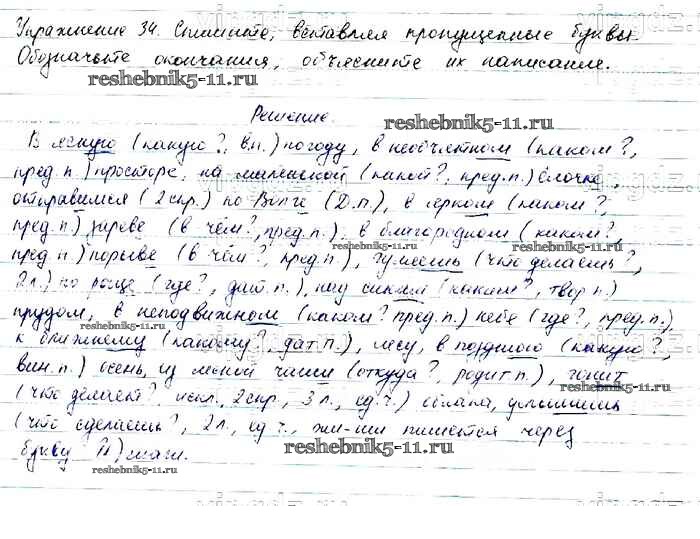 Упражнение 34. Спишите, вставляя пропущенные буквы.
Обозначьте окончания, объясните их написание.
reshebnik5-11.ru
Решение.
reshebnik5-11.ru
В ясную (какую?, в.п.) погоду, в необъятном (каком?,
пред.п.) просторе, на маленькой (какой?, пред.п.) ёлочке,
отправимся (2 спр.) по Волге (Д.п.), в ярком (каком?,
пред.п.) зареве (в чём?, пред.п.), в благородном (каком?,
reshebnik5-11.ru
пред.п.) порыве (в чём?, пред.п.), гуляешь (что делаешь?,
2л.) по роще (где?, дат.п.), над синим (каким?, твор.п.)
прудом, в неподвижном (каком? пред.п.) небе (где?, пред.п.),
reshebnik5-11.ru
к ближнему (какому?, дат.п.), лесу, в позднюю (какую?,
вин.п.) осень, из лесной чащи (откуда?, родит п.), гонит
(что делает? искл., 2спр., 3л., ед.ч.) облака, услышишь
(что сделаешь?, 2л., ед ч., жи-ши пишется через
букву И) шаги.
reshebnik5-11.ru
reshebnik5-11.ru